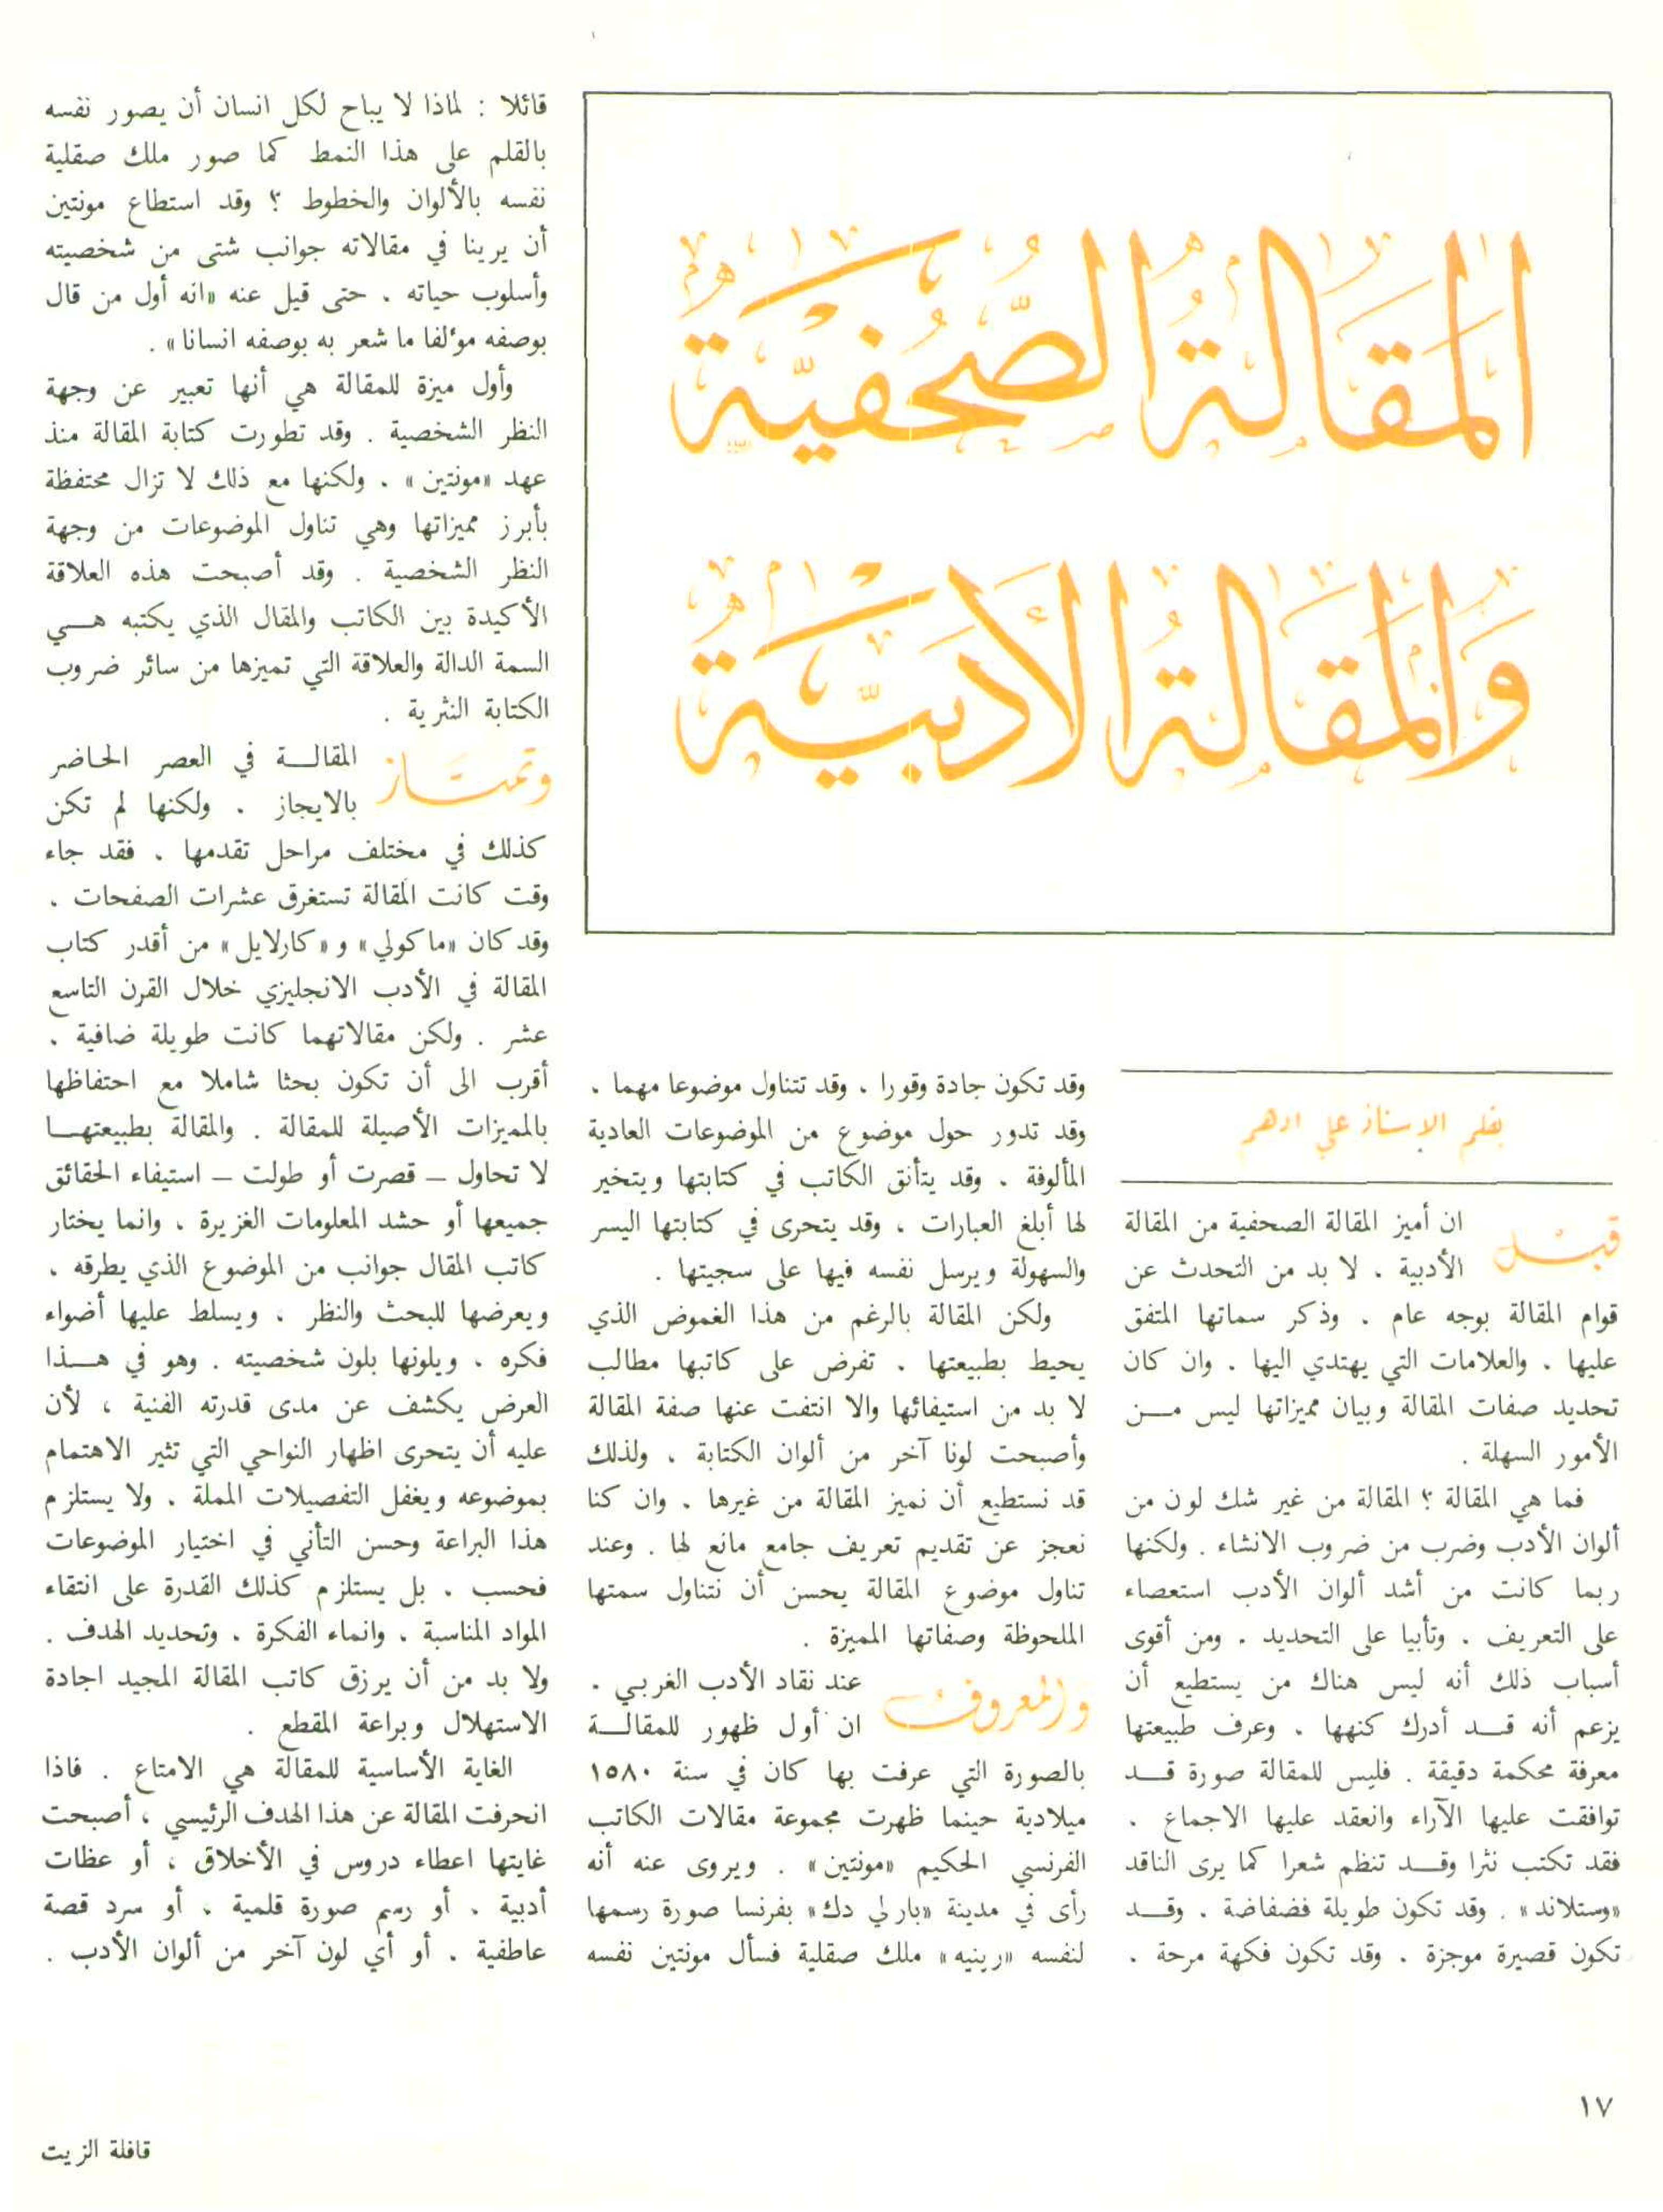 المقالة الصحفية
والمقالة الأدبية
بقلم الاستاذ علي ادهم
قبل ان أميز المقالة الصحفية من المقالة
الأدبية ، لا بد من التحدث عن
قوام المقالة بوجه عام ، وذكر سماتها المتفق
عليها ، والعلامات التي يهتدي اليها ، وان كان
تحديد صفات المقالة وبيان مميزاتها ليس مــن
الأمور السهلة .
فما هي المقالة ؟ المقالة من غير شك لون من
ألوان الأدب وضرب من ضروب الانشاء . ولكنها
ربما كانت من أشد ألوان الأدب استعصاء
على التعريف ، وتأبيا على التحديد ، ومن أقوى
أسباب ذلك أنه ليس هناك من يستطيع أن
يزعم أنه قــد أدرك كنهها ، وعرف طبيعتها
معرفة محكمة دقيقة . فليس للمقالة صورة قــد
توافقت عليها الآراء وانعقد عليها الاجماع .
فقد تكتب نثرا وقــد تنظم شعرا كما يرى الناقد
«وستلاند» . وقد تكون طويلة فضفاضة ، وقــد
تكون قصيرة موجزة ، وقد تكون فكهة مرحة .
وقد تكون جادة وقورا ، وقد تتناول موضوعا مهما ،
وقد تدور حول موضوع من الموضوعات العادية
المألوفة ، وقد يتأنق الكاتب في كتابتها ويتخير
لها أبلغ العبارات ، وقد يتحرى في كتابتها اليسر
والسهولة ويرسل نفسه فيها على سجيتها .
ولكن المقالة بالرغم من هذا الغموض الذي
يحيط بطبيعتها ، تفرض على كاتبها مطالب
لا بد من استيفائها والا انتفت عنها صفة المقالة
وأصبحت لونا آخر من ألوان الكتابة ، ولذلك
قد نستطيع أن نميز المقالة من غيرها ، وان كنا
نعجز عن تقديم تعريف جامع مانع لها . وعند
تناول موضوع المقالة يحسن أن نتناول سمتها
الملحوظة وصفاتها المميزة .
والمعروف عند نقاد الأدب الغربـي ،
ان أول ظهور للمقالــة
بالصورة التي عرفت بها كان في سنة ١٥٨٠
ميلادية حينما ظهرت مجموعة مقالات الكاتب
الفرنسي الحكيم «مونتين» . ويروى عنه أنه
رأى في مدينة «بارلي دك» بفرنسا صورة رسمها
لنفسه «رينيه» ملك صقلية فسأل مونتين نفسه
قائلا : لماذا لا يباح لكل انسان أن يصور نفسه
بالقلم على هذا النمط كما صور ملك صقلية
نفسه بالألوان والخطوط ؟ وقد استطاع مونتين
أن يرينا في مقالاته جوانب شتى من شخصيته
وأسلوب حياته ، حتى قيل عنه «انه أول من قال
بوصفه مؤلفا ما شعر به بوصفه انسانا» .
وأول ميزة للمقالة هي أنها تعبير عن وجهة
النظر الشخصية . وقد تطورت كتابة المقالة منذ
عهد «مونتين» ، ولكنها مع ذلك لا تزال محتفظة
بأبرز مميزاتها وهي تناول الموضوعات من وجهة
النظر الشخصية . وقد أصبحت هذه العلاقة
الأكيدة بين الكاتب والمقال الذي يكتبه هــي
السمة الدالة والعلاقة التي تميزها من سائر ضروب
الكتابة النثرية .
وتمتــاز المقالــة في العصر الحاضر
بالايجاز ، ولكنها لم تكن
كذلك في مختلف مراحل تقدمها ، فقد جاء
وقت كانت المقالة تستغرق عشرات الصفحات .
وقد كان «ماكولي» و «كارلايل» من أقدر كتاب
المقالة في الأدب الانجليزي خلال القرن التاسع
عشر . ولكن مقالاتهما كانت طويلة ضافية ،
أقرب الى أن تكون بحثا شاملا مع احتفاظها
بالمميزات الأصيلة للمقالة . والمقالة بطبيعتهــا
لا تحاول – قصرت أو طولت – استيفاء الحقائق
جميعها أو حشد المعلومات الغزيرة ، وانما يختار
كاتب المقال جوانب من الموضوع الذي يطرقه ،
ويعرضها للبحث والنظر ، ويسلط عليها أضواء
فكره ، ويلونها بلون شخصيته . وهو في هــذا
العرض يكشف عن مدى قدرته الفنية ، لأن
عليه أن يتحرى اظهار النواحي التي تثير الاهتمام
بموضوعه ويغفل التفصيلات المملة ، ولا يستلزم
هذا البراعة وحسن التأني في اختيار الموضوعات
فحسب ، بل يستلزم كذلك القدرة على انتقاء
المواد المناسبة ، وانماء الفكرة ، وتحديد الهدف .
ولا بد من أن يرزق كاتب المقالة المجيد اجادة
الاستهلال وبراعة المقطع .
الغاية الأساسية للمقالة هي الامتاع . فاذا
انحرفت المقالة عن هذا الهدف الرئيسي ، أصبحت
غايتها اعطاء دروس في الأخلاق ، أو عظات
أدبية ، أو رسم صورة قلمية ، أو سرد قصة
عاطفية ، أو أي لون آخر من ألوان الأدب .
١٧
قافلة الزيت